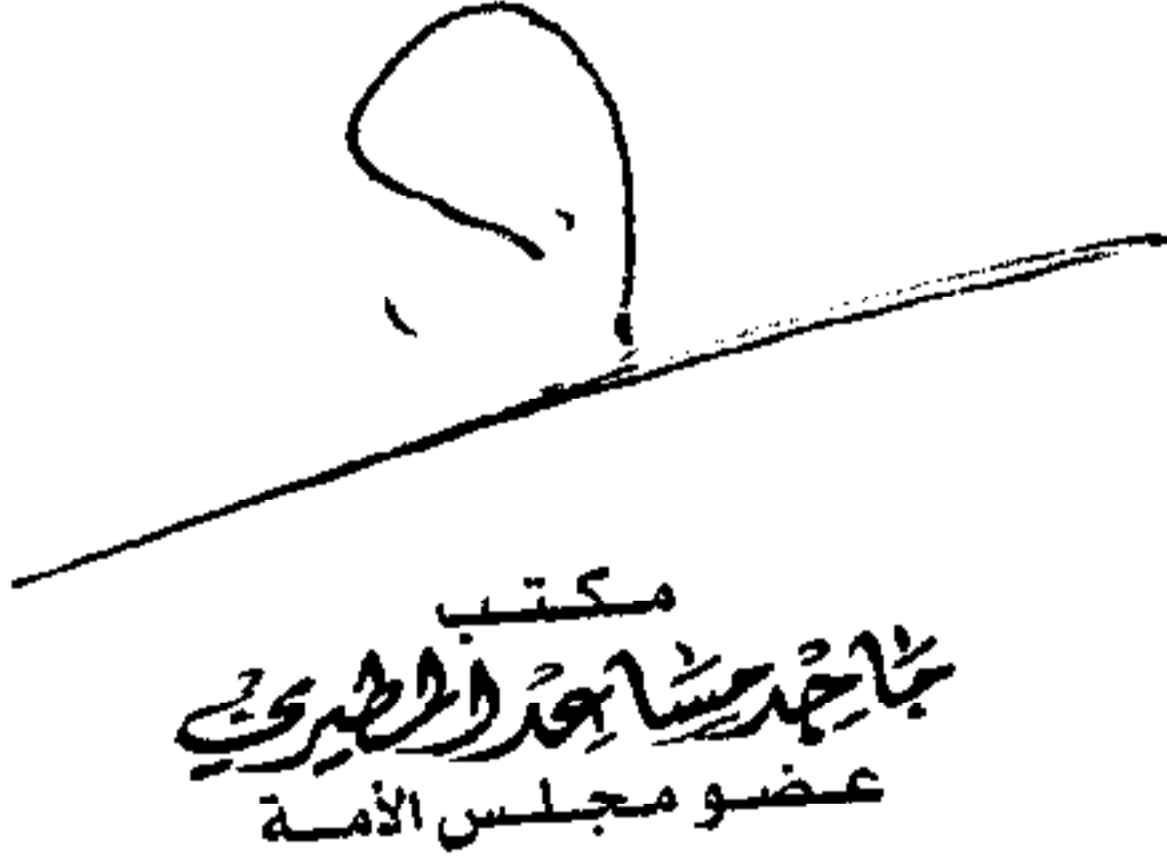 مكتب
ماجد مساعد المطيري
عضو مجلس الأمة